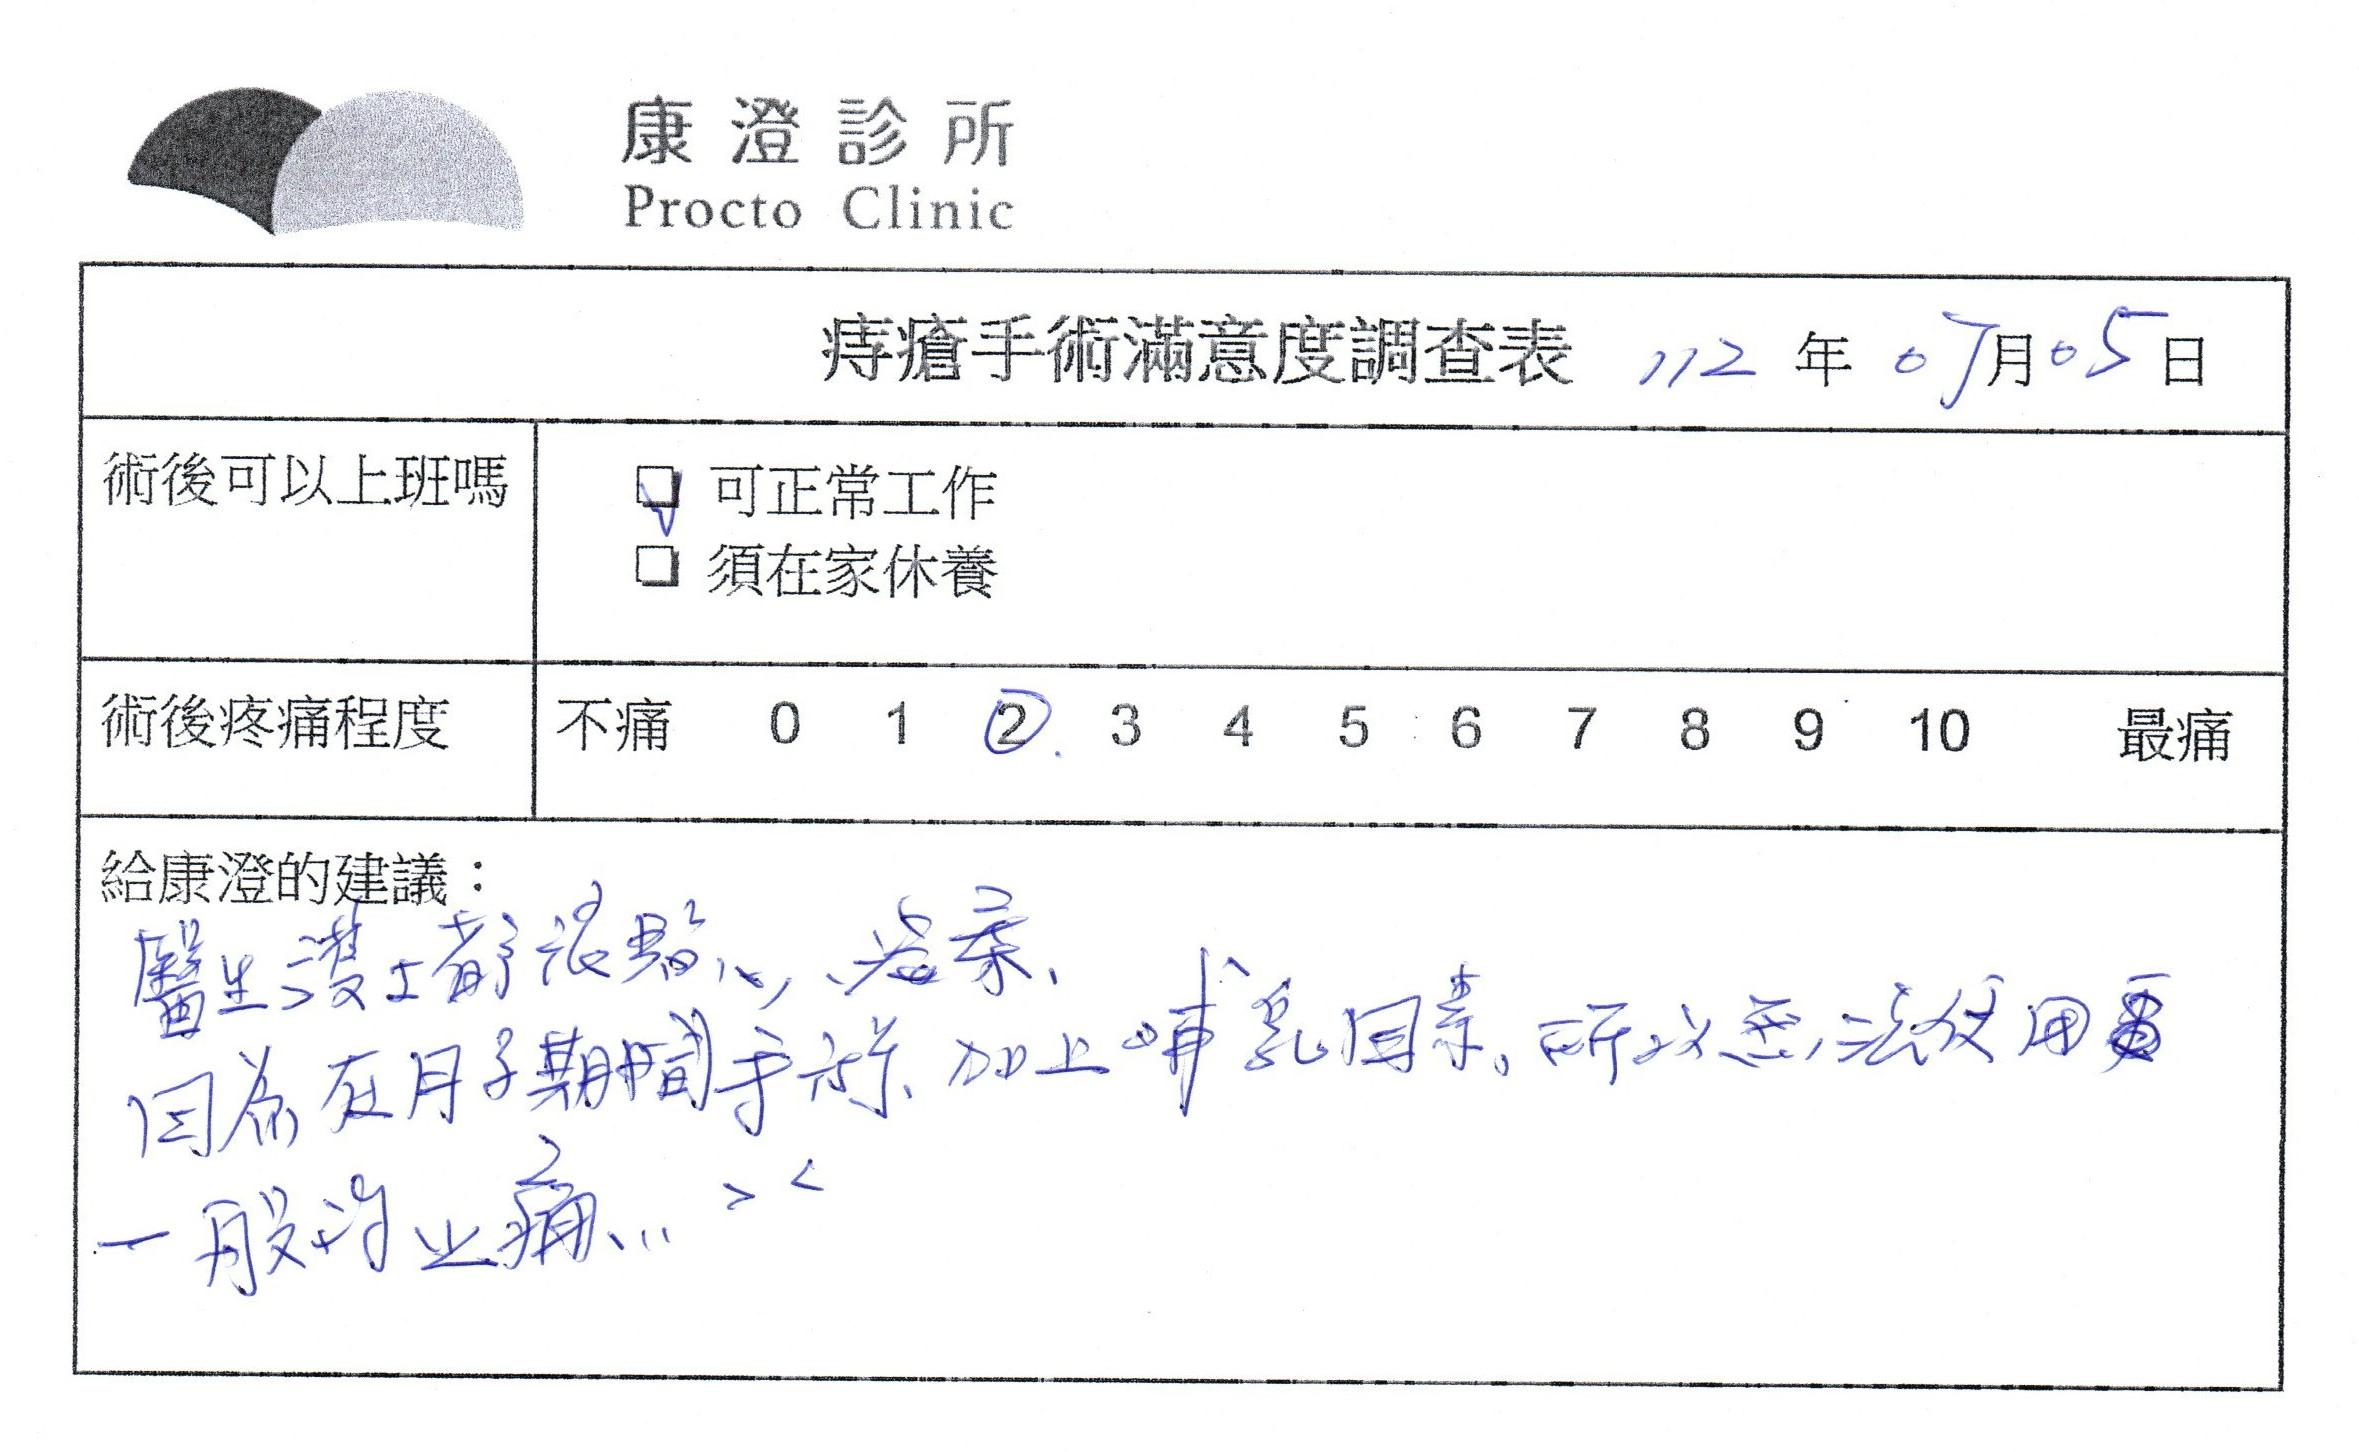 康澄診所
Procto Clinic
痔瘡手術滿意度調查表 112 年 07月05日
術後可以上班嗎
可正常工作
須在家休養
術後疼痛程度 不痛 0 1 2 3 4 5 6 7 8 9 10 最痛
給康澄的建議：
醫生護士都很貼心、溫柔、
因為在月子期間手術、加上哺乳因素、所以無法使用
一般的止痛... > <